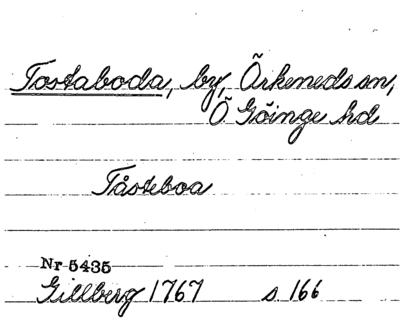 Tostaboda, by, Örkeneds sn,
Ö Göinge hd
Tåsteboa
Nr 5435
Gillberg 1767 s. 166